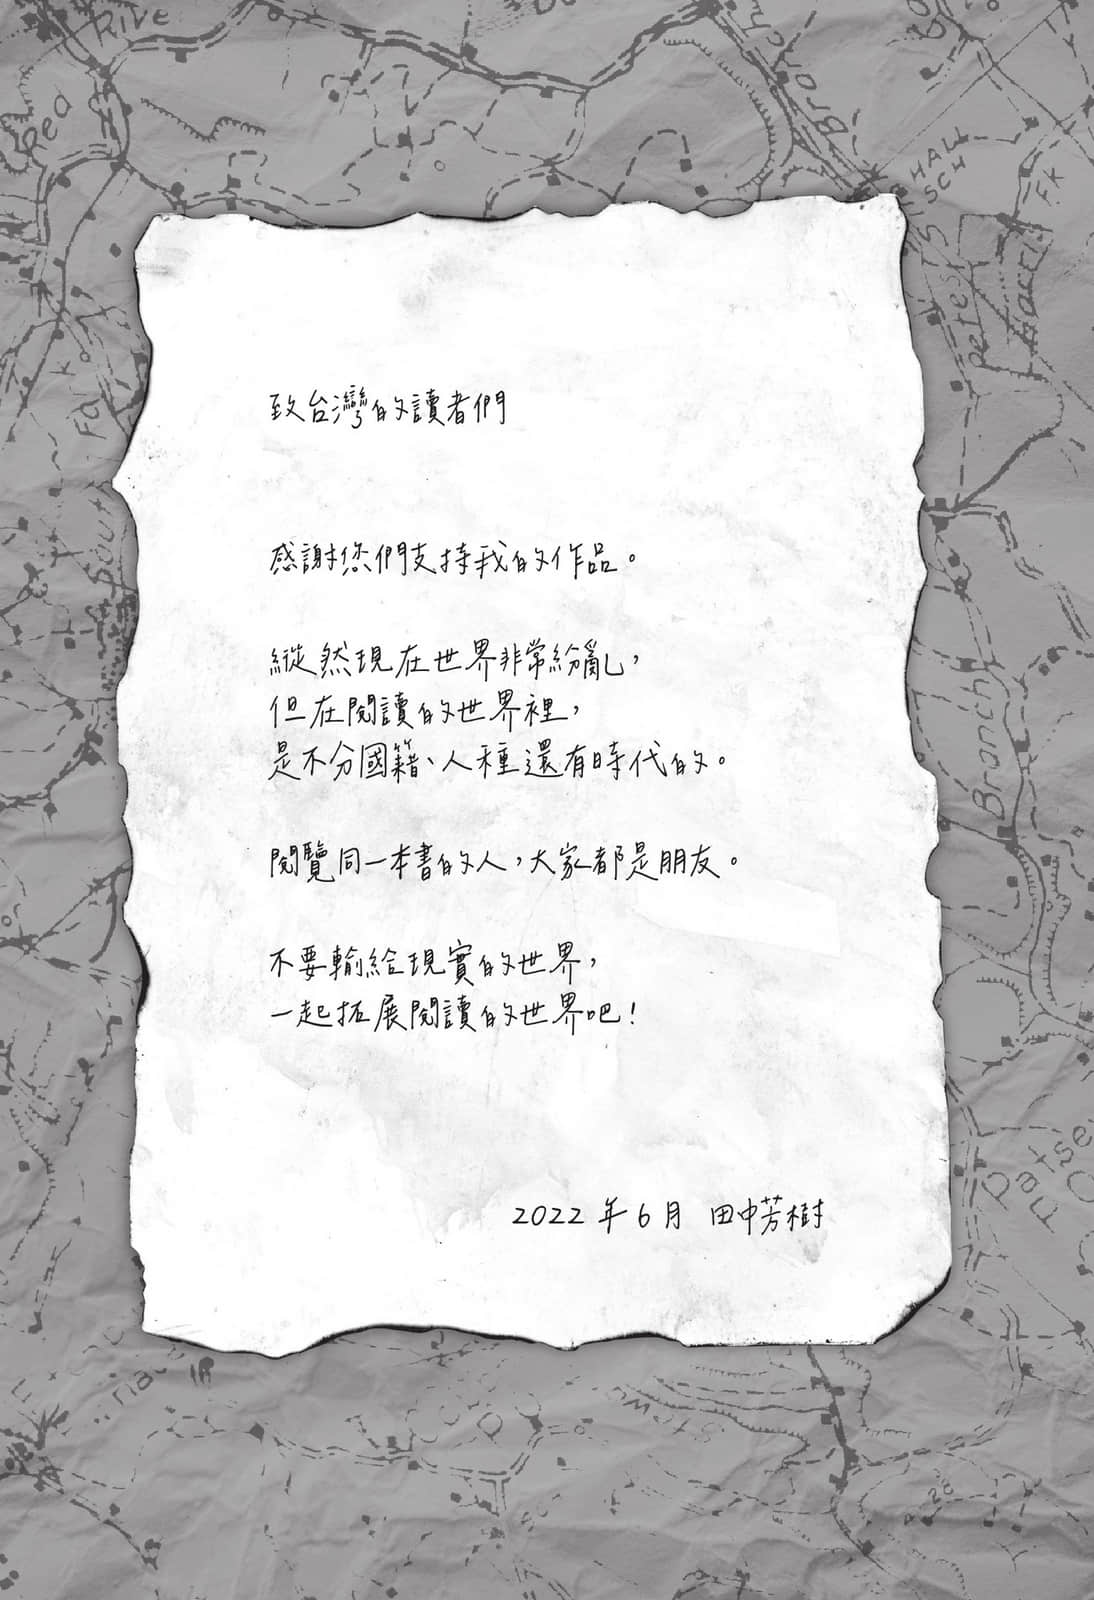 Rive
Read
Branch
HALL
Fk
Fal
Branch
致台灣的讀者們
感謝您們支持我的作品。
縱然現在世界非常紛亂，
但在閱讀的世界裡，
是不分國籍、人種還有時代的。
閱覽同一本書的人，大家都是朋友。
不要輸給現實的世界，
一起拓展閱讀的世界吧！
2022年6月 田中芳樹